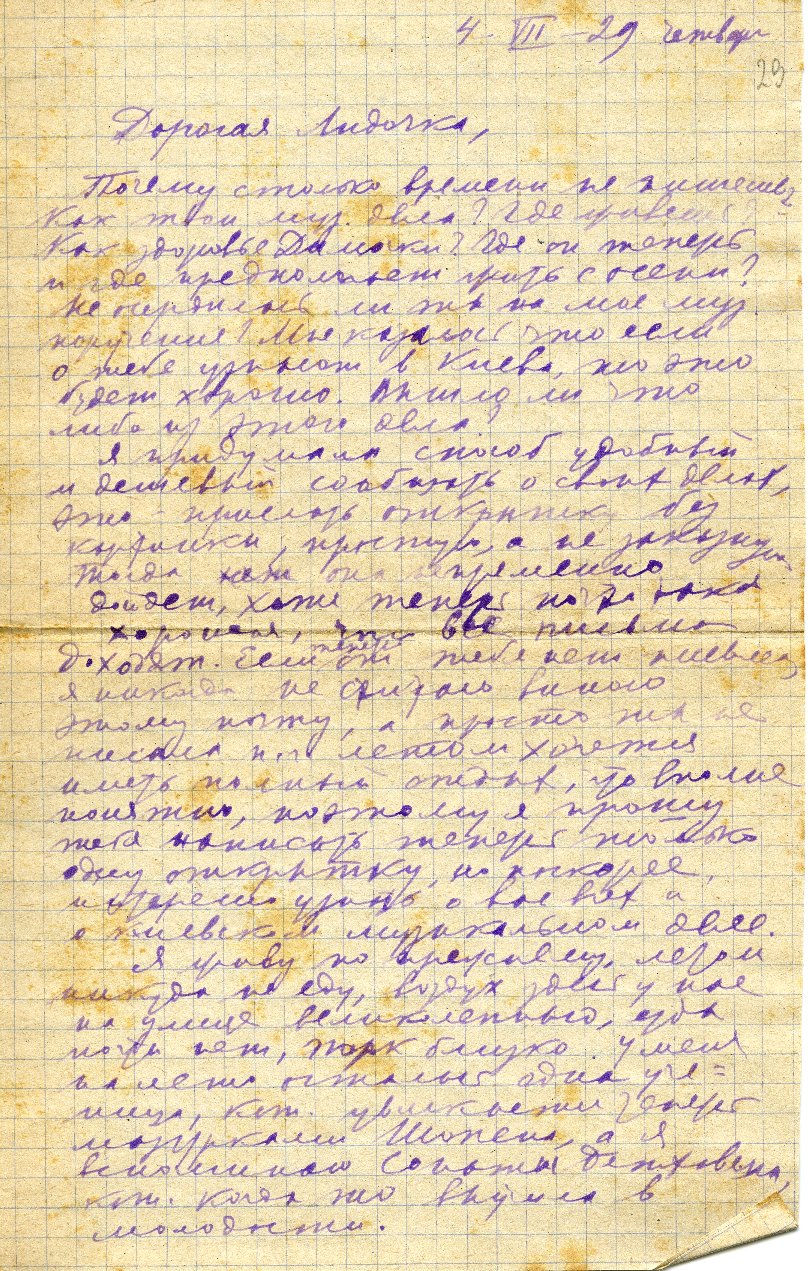 4 - VII - 29 четверг
29
Дорогая Лидочка,
Почему столько времени не пишешь?
Как твои муз. дела? Где живешь?
Как здоровье Димочки? Где он теперь
и где предполагает жить с осени?
Не сердилась ли ты на мое муз.
поручение? Мне казалось что если
о тебе узнают в Киеве, то это
будет хорошо. Вышло ли что
либо из этого дела?
Я придумала способ удобный
и дешевый сообщать о своих делах,
это - прислать открытку без
картинки, простую, а не заказную
тогда она непременно
дойдет, хотя теперь почта такая
хорошая, что все письма
доходят. Если теперь от тебя нет письма,
я никогда не считаю виною
этому почту, а просто ты не
писала п.ч. летом хочется
иметь полный отдых, что вполне
понятно, поэтому я прошу
тебя написать теперь только
одну открытку, но поскорее,
интересно узнать о вас всех и
о киевском музыкальном деле.
Я живу по прежнему, летом
никуда не еду, воздух здесь у нас
на улице великолепный, езды
почти нет, парк близко. У меня
на лето осталась одна уче=
ница, кот. увлекается теперь
мазурками Шопена, а я
вспоминаю Сонаты Бетховена,
кот. когда то выучила в
молодости.